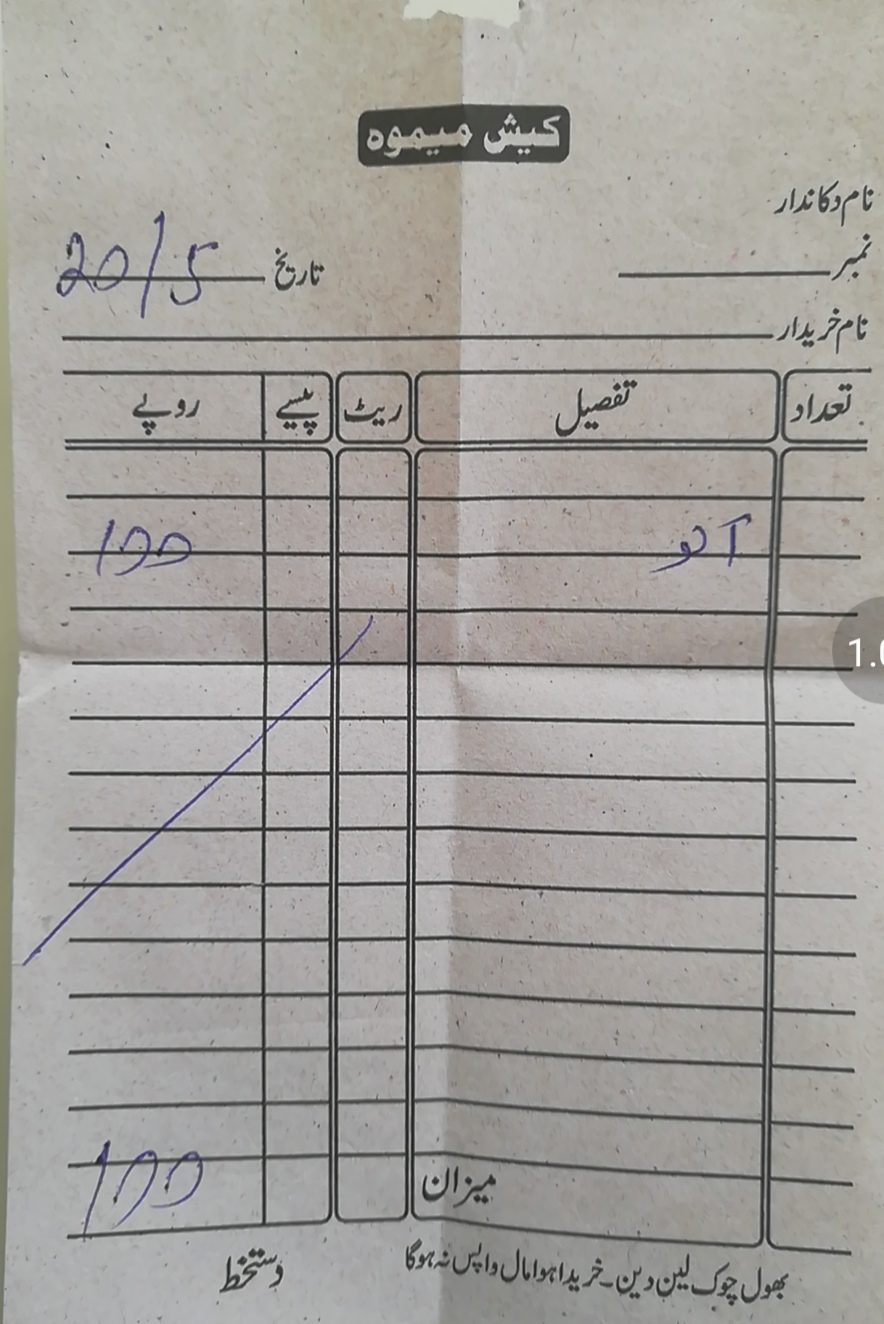 کیش میموہ
نام دکاندار
نمبر تاریخ 20/5
نام خریدار
تعداد تفصیل ریٹ پیسے روپے
آلو 100
میزان 100
بھول چوک لین دین۔ خریدا ہوا مال واپس نہ ہوگا
دستخط
1.0